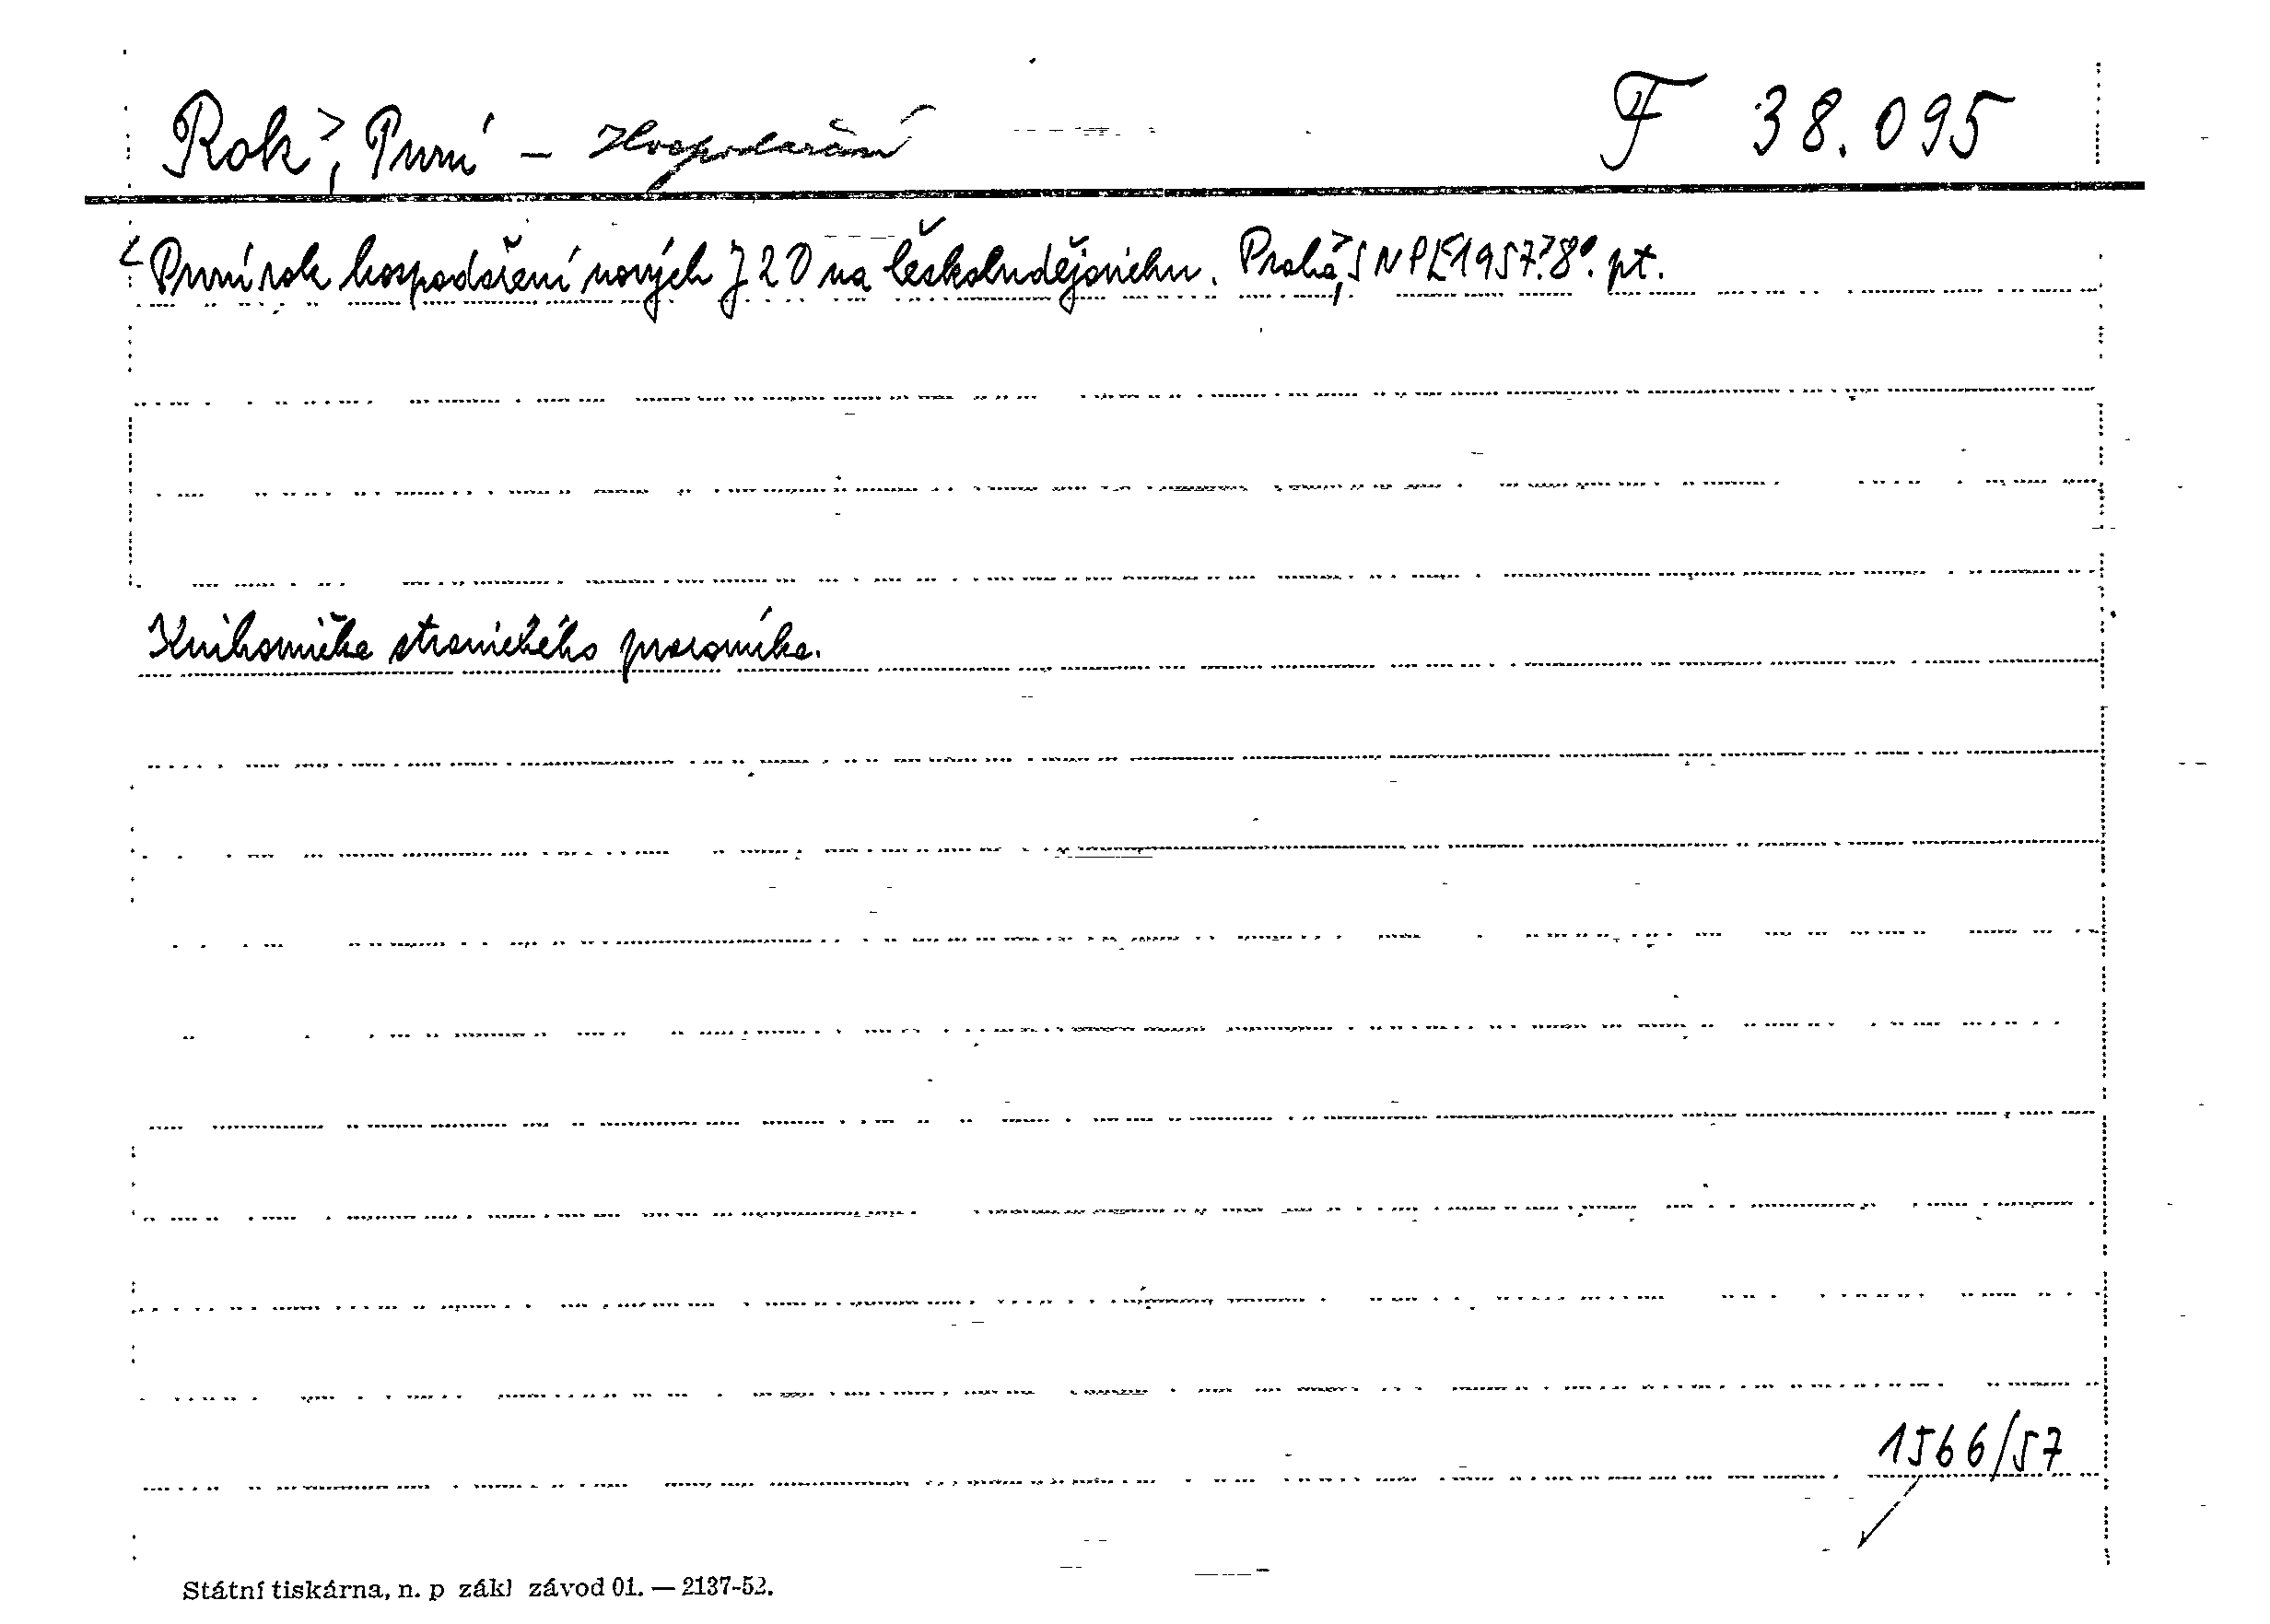 Rok>, První – Hospodaření F 38.095
<První rok hospodaření nových JZD na Českobudějovicku. Praha>, SNPL<1957>. 8°. pt.
Knihovnička stranického pracovníka.
1566/57
Státní tiskárna, n. p zákl závod 01. — 2137-52.